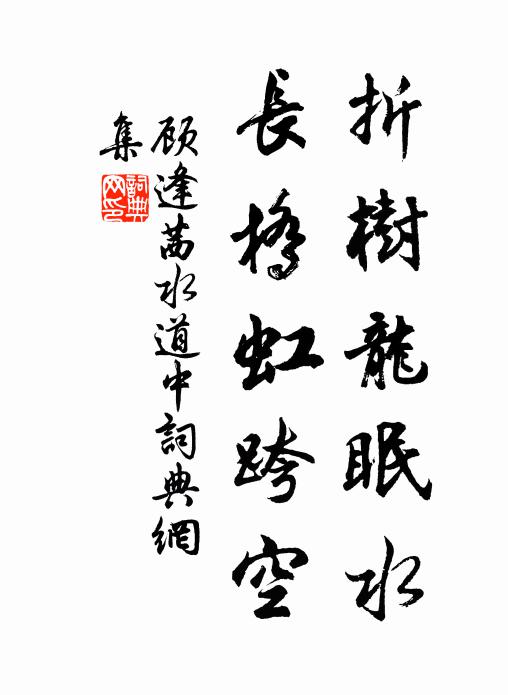 折樹龍眠水
長橋虹跨空
顾逢茜水道中詞典網
集
詞典网印